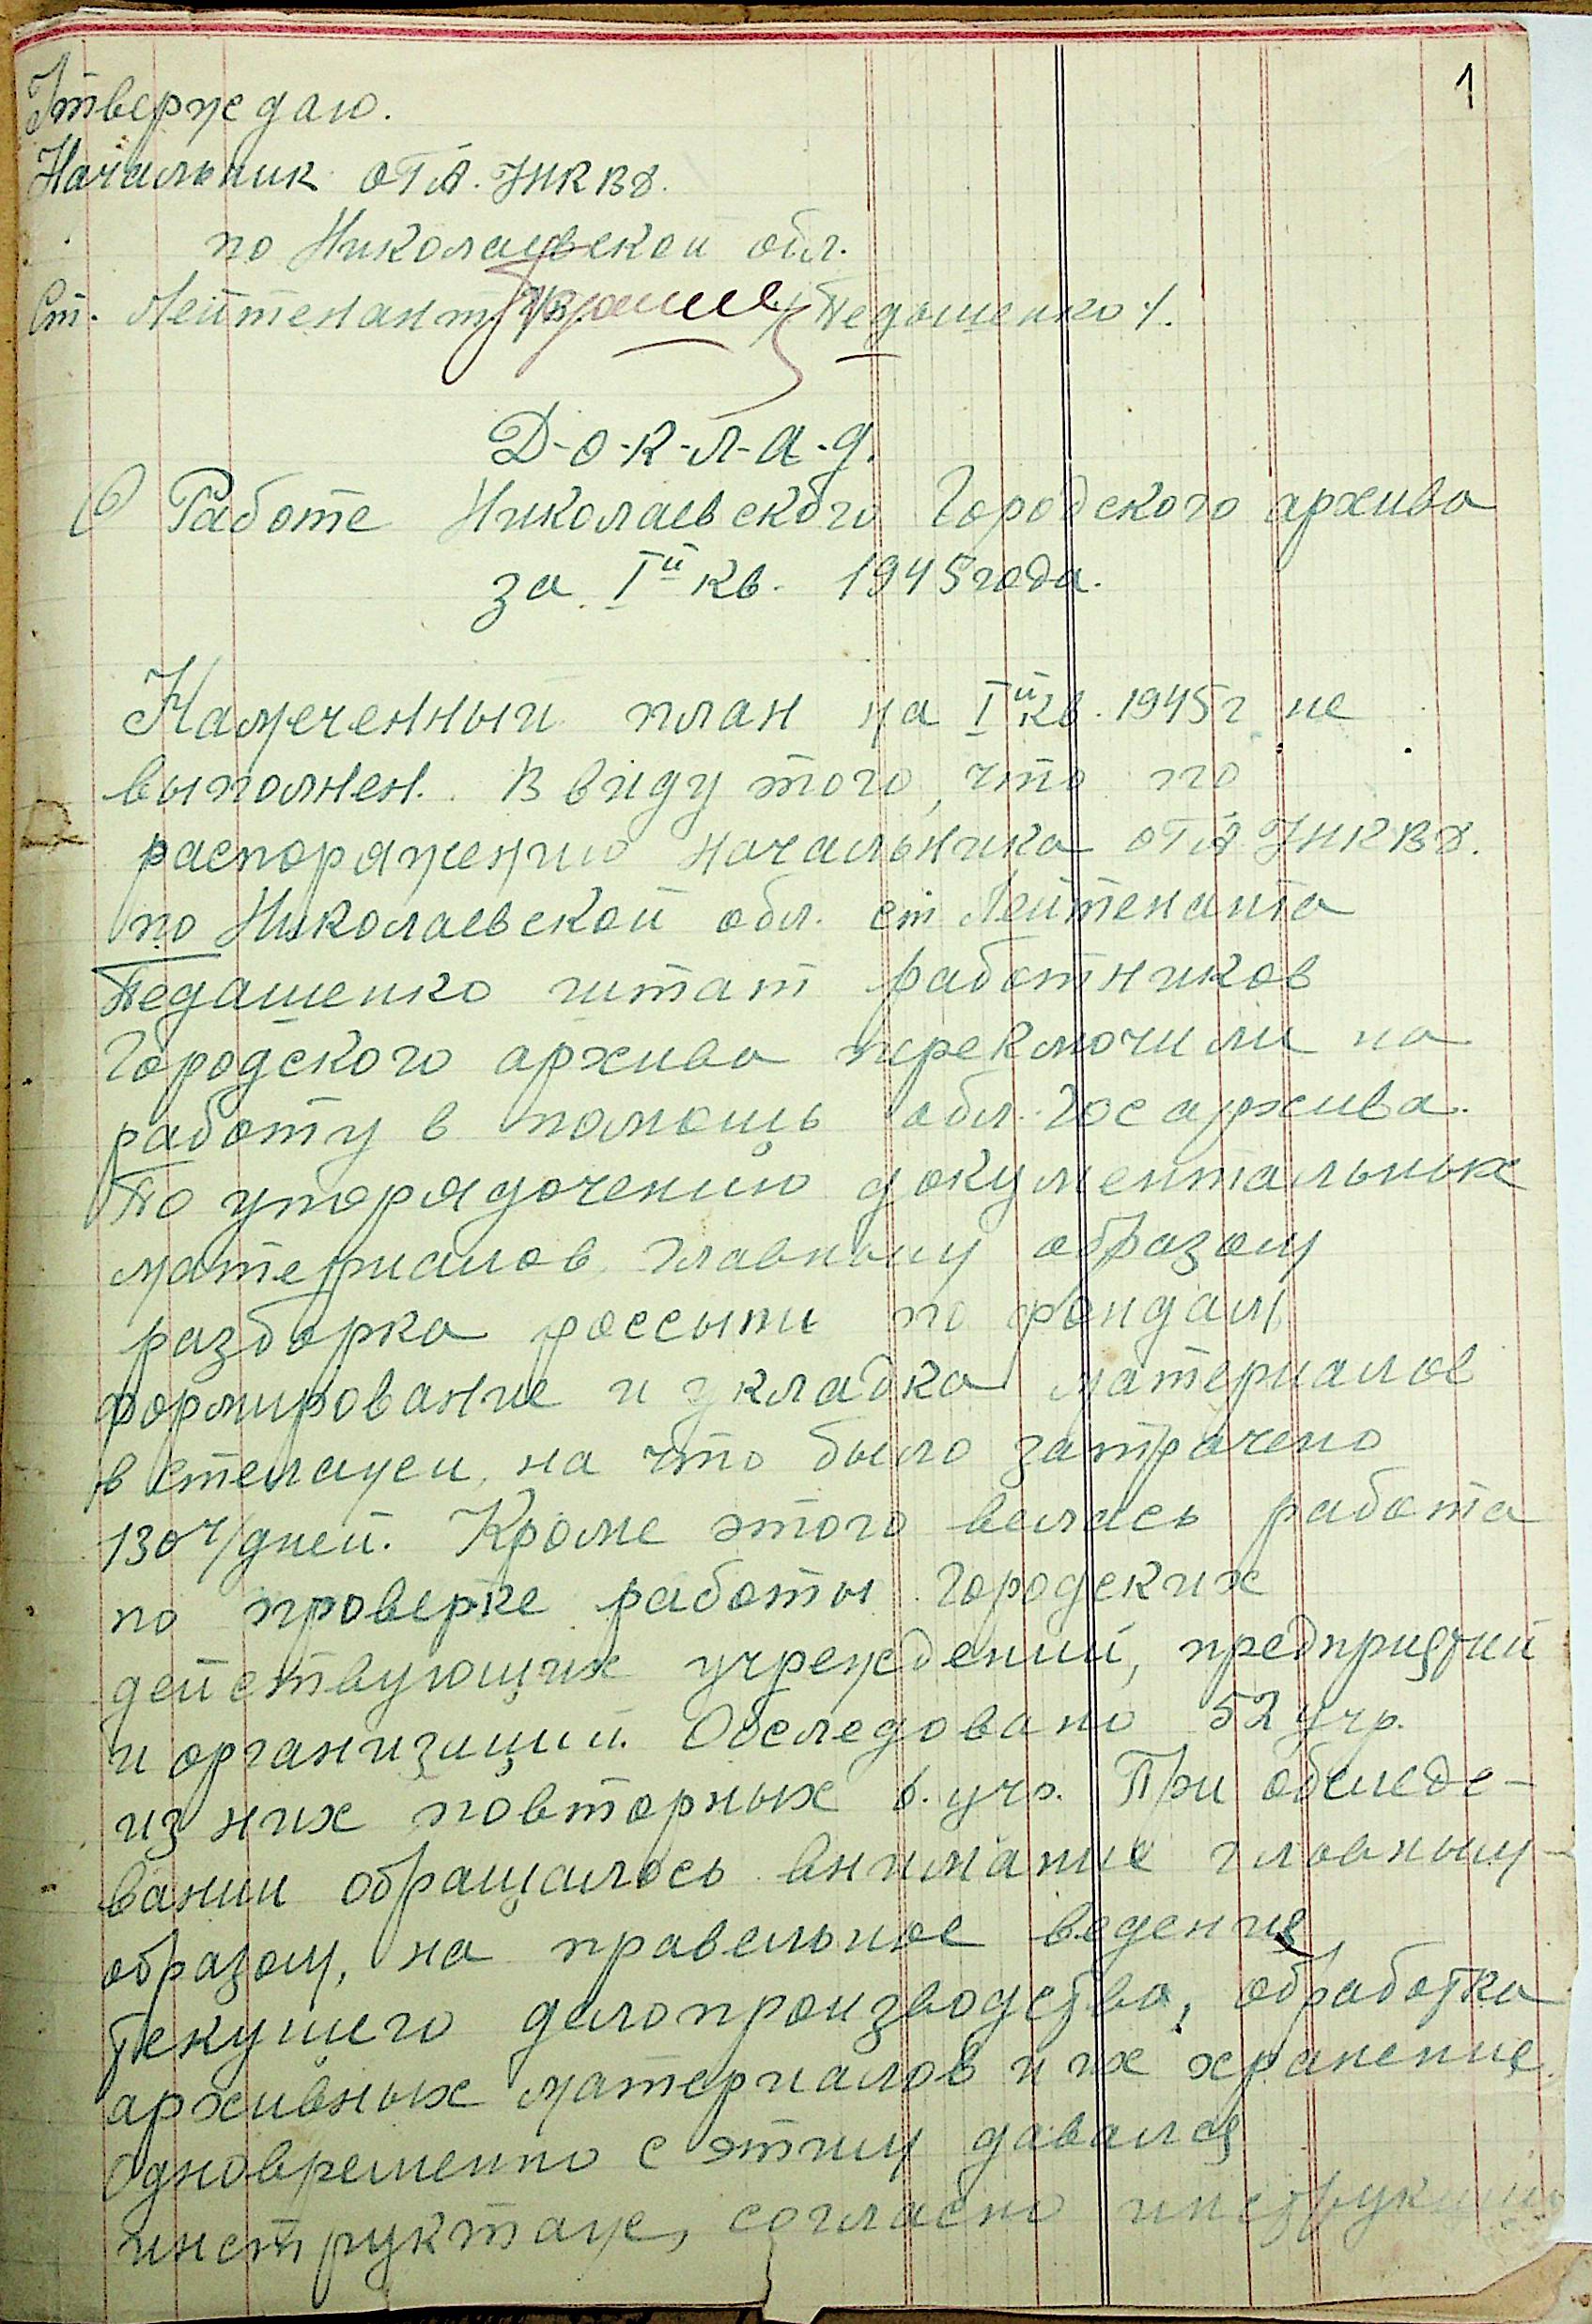 1
Утверждаю.
Начальник ОГА. УНКВД.
по Николаевской обл.
Ст. Лейтенант /Педашенко/.
Д-о-к-л-а-д.
О Работе Николаевского Городского архива
за I й кв. 1945 года.
Намеченный план на I й кв. 1945 г не
выполнен. В виду того, что по
распоряжению начальника ОГА УНКВД.
по Николаевской обл. ст Лейтенанта
Педашенко штат работников
Городского архива переключили на
работу в помощь обл. Госархива.
По упорядочению документальных
материалов, главным образом
разборка россыпи по фондам,
формирование и укладка материалов
в стелажи, на что было затрачено
130 ч/дней. Кроме этого велась работа
по проверке работы Городских
действующих учреждений, предприятий
и организиций. Обследовано 52 учр.
из них повторных 6. учр. При обследо-
вании обращалось внимание главным-
образом, на правельное ведение
текущего делопроизводства, обработка
архивных материалов и их хранение.
Одновременно с этим давался
инструктаж, согласно инструкции